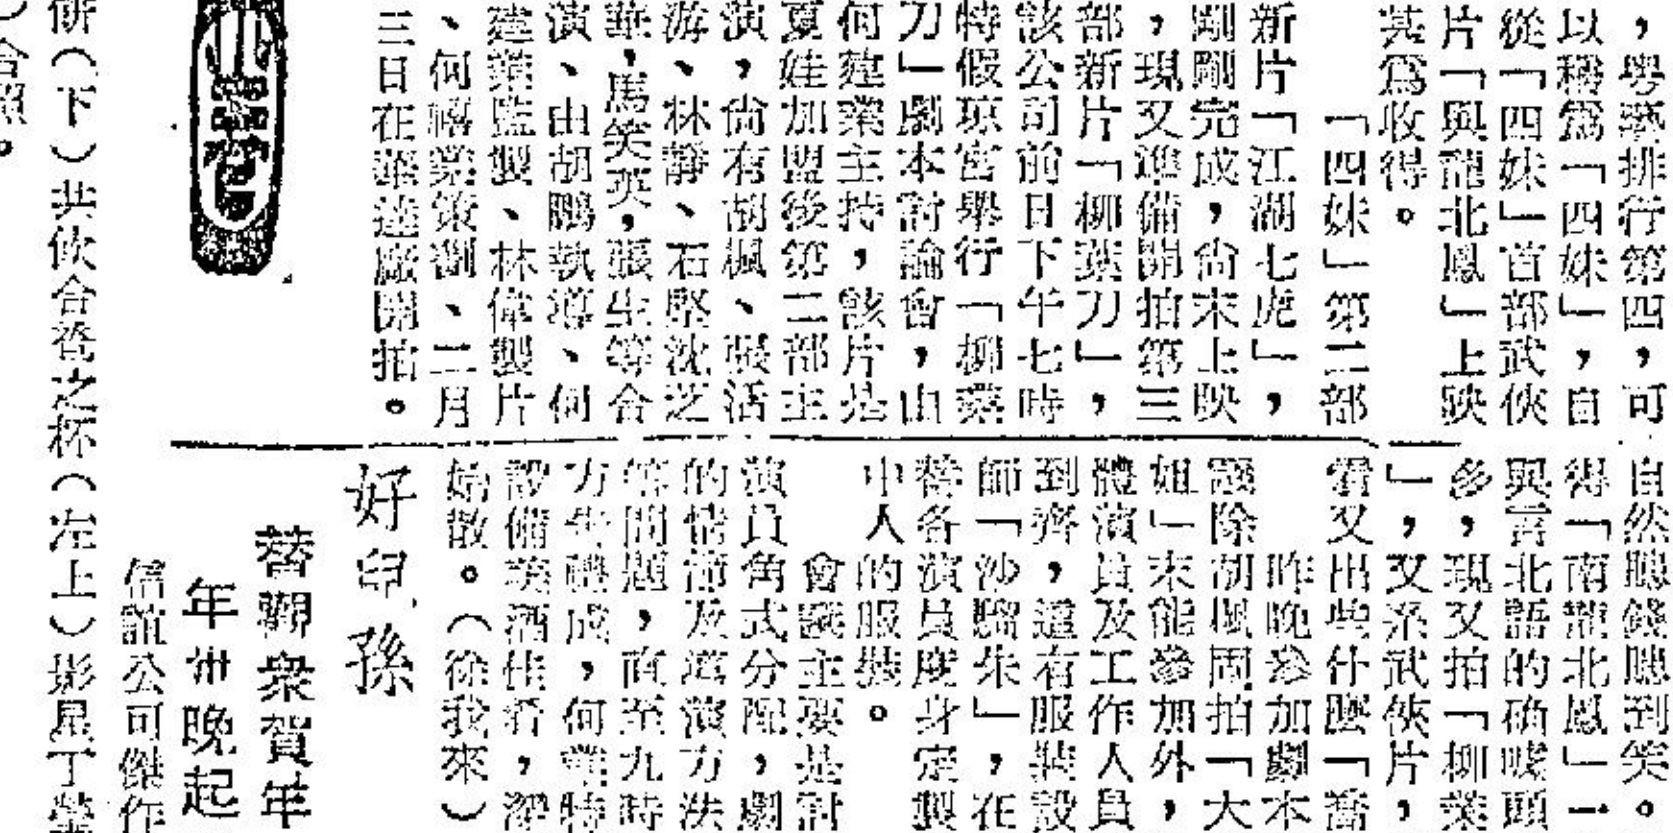 ，粵劇排行第四，可
以稱爲「四妹」，自
從「四妹」首部武俠
片「與龍北鳳」上映
甚爲收得。
「四妹」第二部
新片「江湖七虎」，
剛剛完成，尙未上映
，現又準備開拍第三
部新片「柳葉刀」，
該公司前日下午七時
特假瓊宮舉行「柳葉
刀」劇本討論會，由
何建業主持，該片是
夏娃加盟後第二部主
演，尙有胡楓、張活
游、林靜、石堅沈芝
華，馬笑英，張生等合
演、由胡鵬執導、何
建業監製、林偉製片
、何 業策劃、二月
三日在華達廠開拍。
自然聽錢聽到笑。
得「南龍北鳳」一
與言北語的确噱頭
多，現又拍「柳葉
」，又系武俠片，
看又出些什麼「喬
昨晚參加劇本
題除胡楓周拍「大
姐」未能參加外，
體演員及工作人員
到齊，還有服裝設
師「沙騮朱」，在
替各演員度身定製
中人的服裝。
會議主要是討
演員角式分配，劇
的情節及導演方法
等問題，直至九時
方告 成，何業特
設備美酒佳肴，深
始散。（徐我來）
好兒孫
替觀衆賀年
年卅晚起
信誼公司傑作
併（下）共飲合卺之杯（左上）影星丁瑩
）合照。